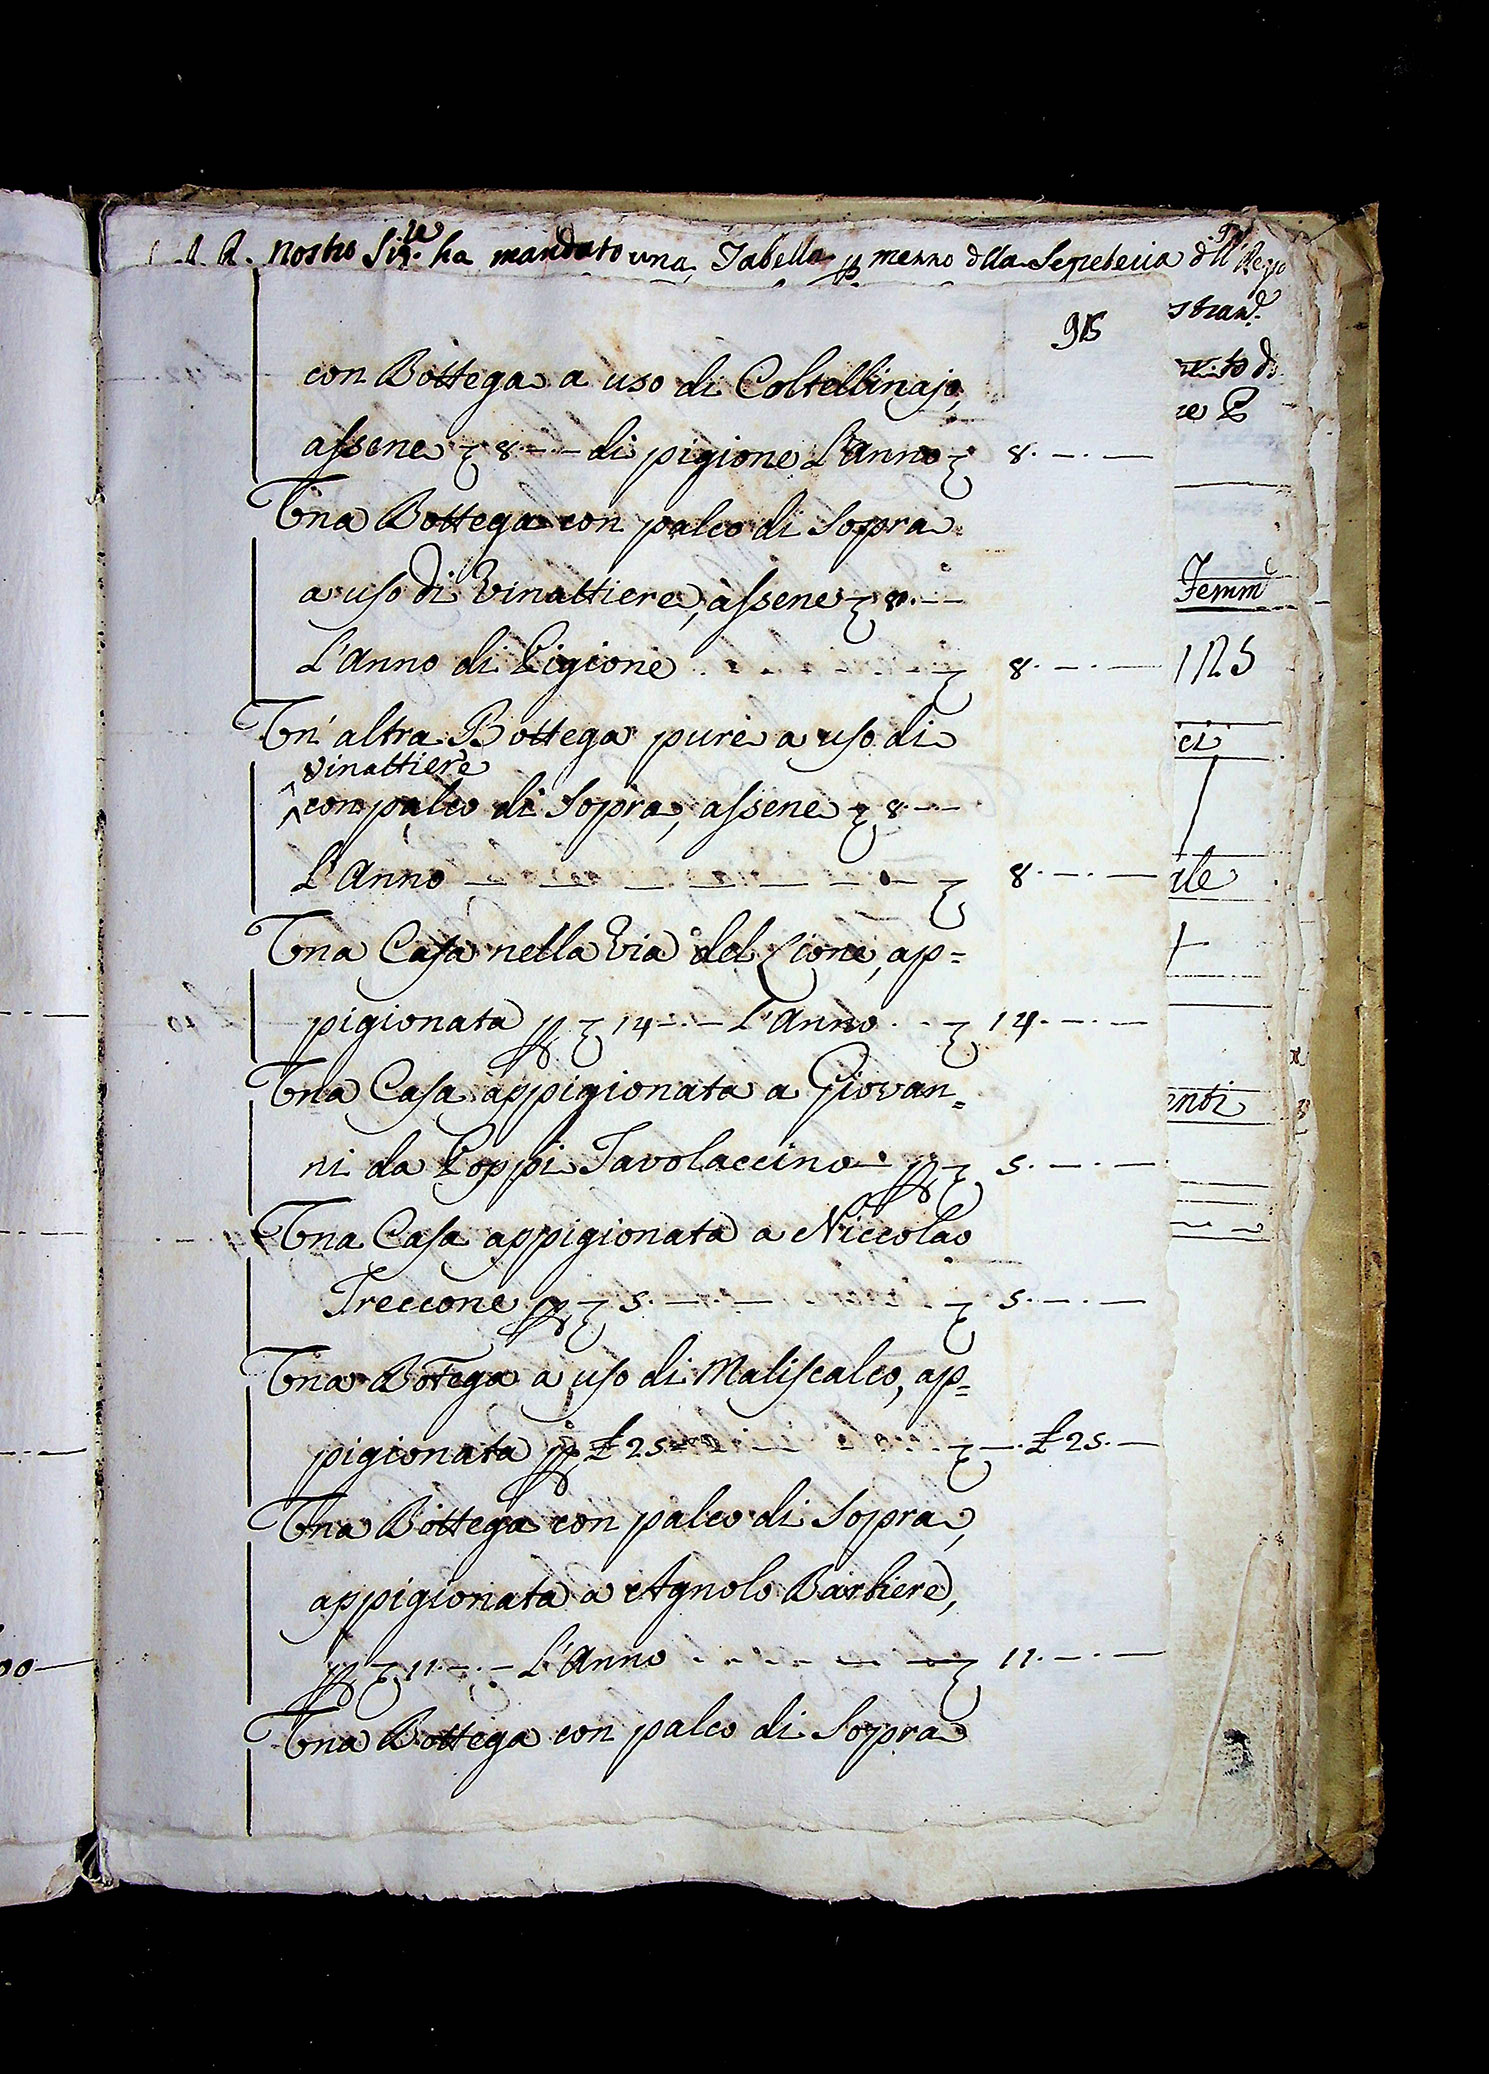 A. R. nostro Sig.re ha mandato una Tabella p mezzo dlla Segreteria dll
915
strand.
con Bottega a uso di Coltellinajo,
assene ʒ 8.-.- di pigione L'anno ʒ 8.-.-
Una Bottega con palco di sopra
a uso di Vinattiere, assene ʒ 8.-.-
L'Anno di Pigione ʒ 8.-.-
Un' altra Bottega pure a uso di
vinattiere
^ con palco di sopra, assene ʒ 8.-.-
L'Anno - - - - - - ʒ 8.-.-
Una Casa nella Via del Lione, ap=
pigionata p ʒ 14.-.- L'Anno . . ʒ 14.-.-
Una Casa appigionata a Giovan=
ni da Poppi Tavolaccino - p ʒ 5.-.-
Una Casa appigionata a Niccolao
Treccone p ʒ 5.-.- ʒ 5.-.-
Una Bottega a uso di Maliscalco, ap=
pigionata p £ 25.- ʒ -.£ 25.-
Una Bottega con palco di sopra,
appigionata a Agnolo Barbiere,
p ʒ 11.-.- L'Anno . . . . - - ʒ 11.-.-
Una Bottega con palco di sopra
Femm
1125
ci
ale
enti
00-